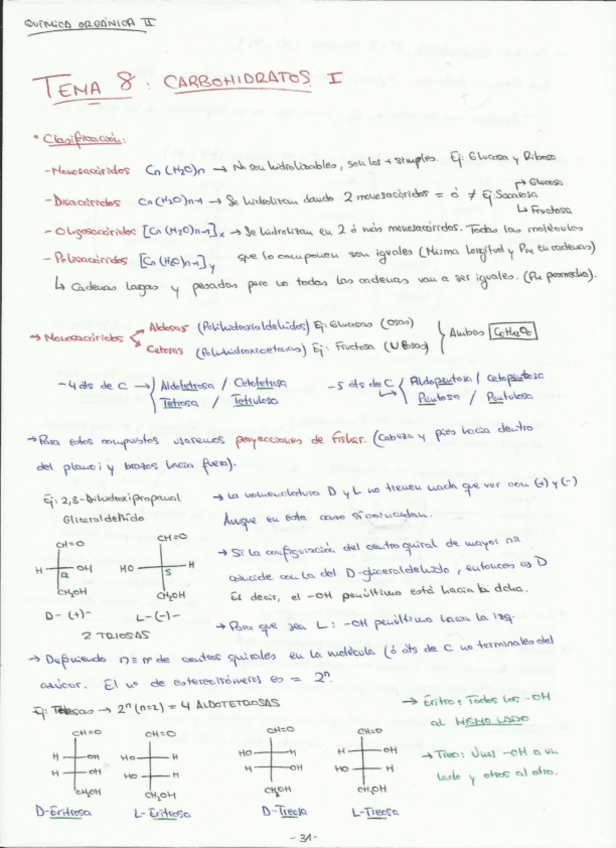 QUÍMICA ORGÁNICA II
TEMA 8: CARBOHIDRATOS I
• Clasificación:
- Monosacáridos Cn(H2O)n → No son hidrolizables, son los + simples. Ej: Glucosa y Ribosa
- Disacáridos Cn(H2O)n-1 → Se hidrolizan dando 2 monosacáridos = ó ≠ Ej: Sacarosa → Glucosa
↳ Fructosa
- Oligosacáridos [Cn(H2O)n-1]x → Se hidrolizan en 2 ó más monosacáridos. Todas las moléculas
- Polisacáridos [Cn(H2O)n-1]y que lo componen son iguales (Misma longitud y PM en cadenas)
↳ Cadenas largas y pesadas pero no todas las cadenas van a ser iguales. (PM promedio).
→ Monosacáridos Aldosas (Polihidroxialdehídos) Ej: Glucosas (OSAS)
Cetosas (Polihidroxicetonas) Ej: Fructosa (Ulosas) Ambos C6H12O6
- 4 áts de C → Aldotetrosa / Cetotetrosa - 5 áts de C Aldopentosa / Cetopentosa
Tetrosa / Tetrulosa Pentosa / Pentulosa
→ Para estos compuestos usaremos proyecciones de Fisher. (Cabeza y pies hacia dentro
del plano; y brazos hacia fuera).
Ej: 2,3-Dihidroxipropanal
Gliceraldehído
→ La nomenclatura D y L no tienen nada que ver con (+) y (-)
Aunque en este caso sí coincidan.
CH=O CH=O
H OH HO H
R S
CH2OH CH2OH
D-(+)- L-(-)-
2 TRIOSAS
→ Si la configuración del centro quiral de mayor nº
coincide con la del D-gliceraldehído, entonces es D
Es decir, el -OH penúltimo está hacia la dcha.
→ Para que sea L: -OH penúltimo hacia la izq.
→ Definiendo n = nº de centros quirales en la molécula (ó áts de C no terminales del
azúcar. El nº de estereoisómeros es = 2^n.
Ej: Tetrosas → 2^n (n=2) = 4 ALDOTETROSAS
→ Eritro: Todos los -OH
al MISMO LADO
→ Treo: Unos -OH a un
lado y otros al otro.
CH=O CH=O CH=O CH=O
H OH HO H HO H H OH
H OH HO H H OH HO H
CH2OH CH2OH CH2OH CH2OH
D-Eritrosa L-Eritrosa D-Treosa L-Treosa
- 31 -